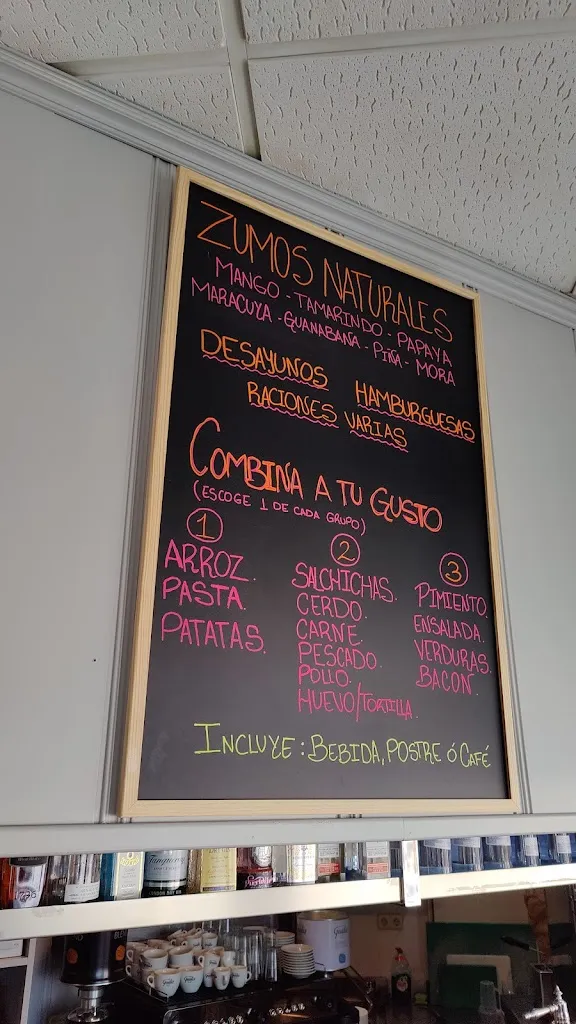 ZUMOS NATURALES
MANGO - TAMARINDO - PAPAYA
MARACUYA - GUANABANA - PIÑA - MORA
DESAYUNOS HAMBURGUESAS
RACIONES VARIAS
COMBINA A TU GUSTO
(ESCOGE 1 DE CADA GRUPO)
1
ARROZ.
PASTA.
PATATAS.
2
SALCHICHAS.
CERDO.
CARNE.
PESCADO.
POLLO.
HUEVO/TORTILLA.
3
PIMIENTO.
ENSALADA.
VERDURAS.
BACON.
INCLUYE: BEBIDA, POSTRE ó CAFÉ
Tanqueray